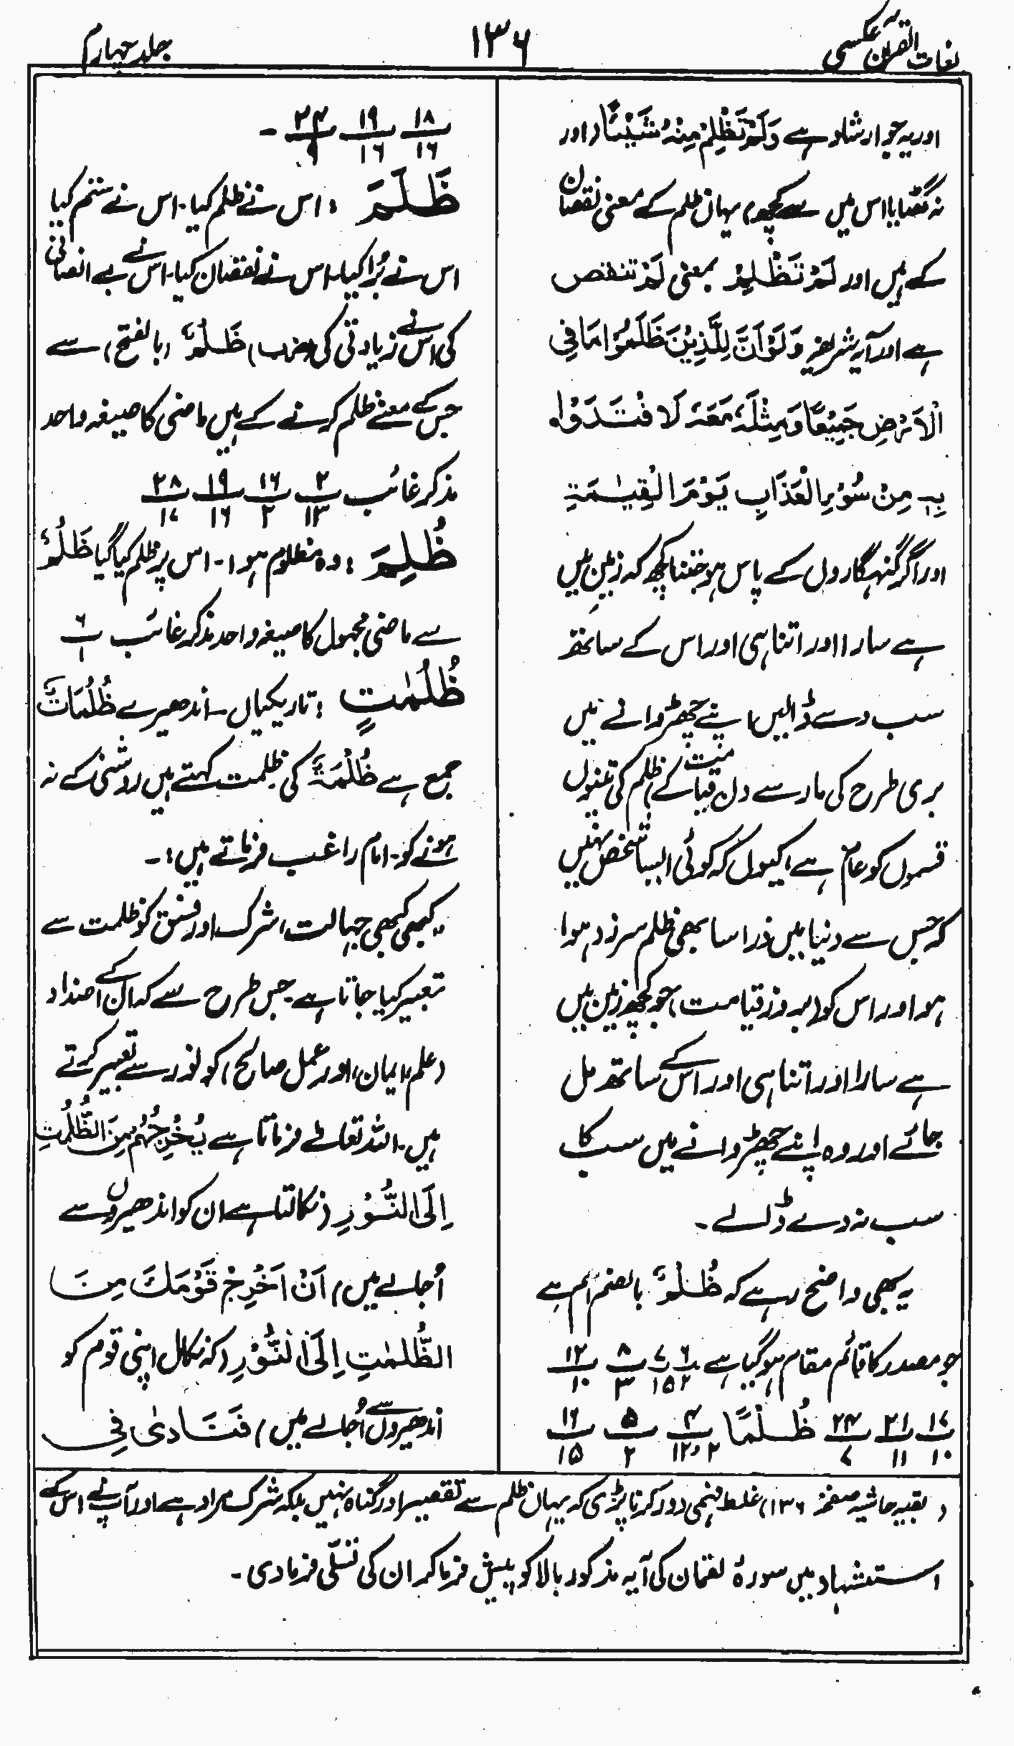 لغات القرآن عکسی
۱۳۶
جلد چہارم
اور یہ جو ارشاد ہے وَلَمْ تَظْلِمْ مِنْهُ شَيْئًا (اور
نہ گھٹایا اس میں سے کچھ) یہاں ظلم کے معنی نقصان
کے ہیں اور لَمْ تَظْلِمْ بمعنی لَمْ تنقص
ہے اور آیہ شریفہ وَلَوْ اَنَّ لِلَّذِيْنَ ظَلَمُوْا مَا فِي
الْاَرْضِ جَمِيْعًا وَّمِثْلَهٗ مَعَهٗ لَافْتَدَوْا
بِهٖ مِنْ سُوْءِ الْعَذَابِ يَوْمَ الْقِيٰمَةِ
اور اگر گنہگاروں کے پاس ہو جتنا کچھ کہ زمین میں
ہے سارا اور اتنا ہی اور اس کے ساتھ
سب دے ڈالیں اپنے چھڑوانے میں
بری طرح کی مار سے دن قیامت کے) ظلم کی تینوں
قسموں کو عام ہے، کیوں کہ کوئی ایسا شخص نہیں
کہ جس سے دنیا میں ذرا سا بھی ظلم سرزد ہوا
ہو اور اس کو (بروز قیامت) جو کچھ زمین میں
ہے سارا اور اتنا ہی اور اس کے ساتھ مل
جائے اور وہ اپنے چھڑوانے میں سب کا
سب نہ دے ڈالے۔
یہ بھی واضح رہے کہ ظُلْمٌ بالضم اسم ہے
جو مصدر کا قائم مقام ہو گیا ہے ۶/۲ ۷/۱۵ ۸/۳ ۱۲/۱۰
۱۷/۱۰ ۲۱/۱۱ ۲۴/۷ ظُلْمًا ۴/۱۲،۲ ۵/۲ ۱۶/۱۵
۱۸/۱۶ ۱۹/۱۶ ۲۴/۹ ۔
ظَلَمَ : اس نے ظلم کیا۔ اس نے ستم کیا
اس نے بُرا کیا۔ اس نے نقصان کیا۔ اس نے بے انصافی
کی اس نے زیادتی کی (ضرب) ظَلْمٌ (بالفتح) سے
جس کے معنے ظلم کرنے کے ہیں ماضی کا صیغہ واحد
مذکر غائب ۲/۱۳ ۱۶/۲ ۱۹/۱۶ ۲۸/۱۷
ظُلِمَ : وہ مظلوم ہوا۔ اس پر ظلم کیا گیا ظَلْمٌ
سے ماضی مجہول کا صیغہ واحد مذکر غائب ۶/۱
ظُلُمٰتٍ : تاریکیاں۔ اندھیرے ظُلُمَاتٌ
جمع ہے ظُلْمَةٌ کی ظلمت کہتے ہیں روشنی کے نہ
ہونے کو۔ امام راغب فرماتے ہیں:۔
"کبھی کبھی جہالت، شرک اور فسق کو ظلمت سے
تعبیر کیا جاتا ہے۔ جس طرح سے کہ ان کے اضداد
(علم، ایمان، اور عمل صالح) کو نور سے تعبیر کرتے
ہیں۔ اللہ تعالےٰ فرماتا ہے يُخْرِجُهُمْ مِنَ الظُّلُمٰتِ
اِلَى النُّوْرِ (نکالتا ہے ان کو اندھیروں سے
اُجالے میں) اَنْ اَخْرِجْ قَوْمَكَ مِنَ
الظُّلُمٰتِ اِلَى النُّوْرِ (کہ نکال اپنی قوم کو
اندھیروں سے اُجالے میں) فَنَادٰى فِي
(بقیہ حاشیہ صفحہ ۱۳۶) غلط فہمی دور کرنا پڑی کہ یہاں ظلم سے تقصیر اور گناہ نہیں بلکہ شرک مراد ہے اور آپ نے اس کے
استشہاد میں سورۂ لقمان کی آیہ مذکور بالا کو پیش فرما کر ان کی تسلّی فرما دی۔